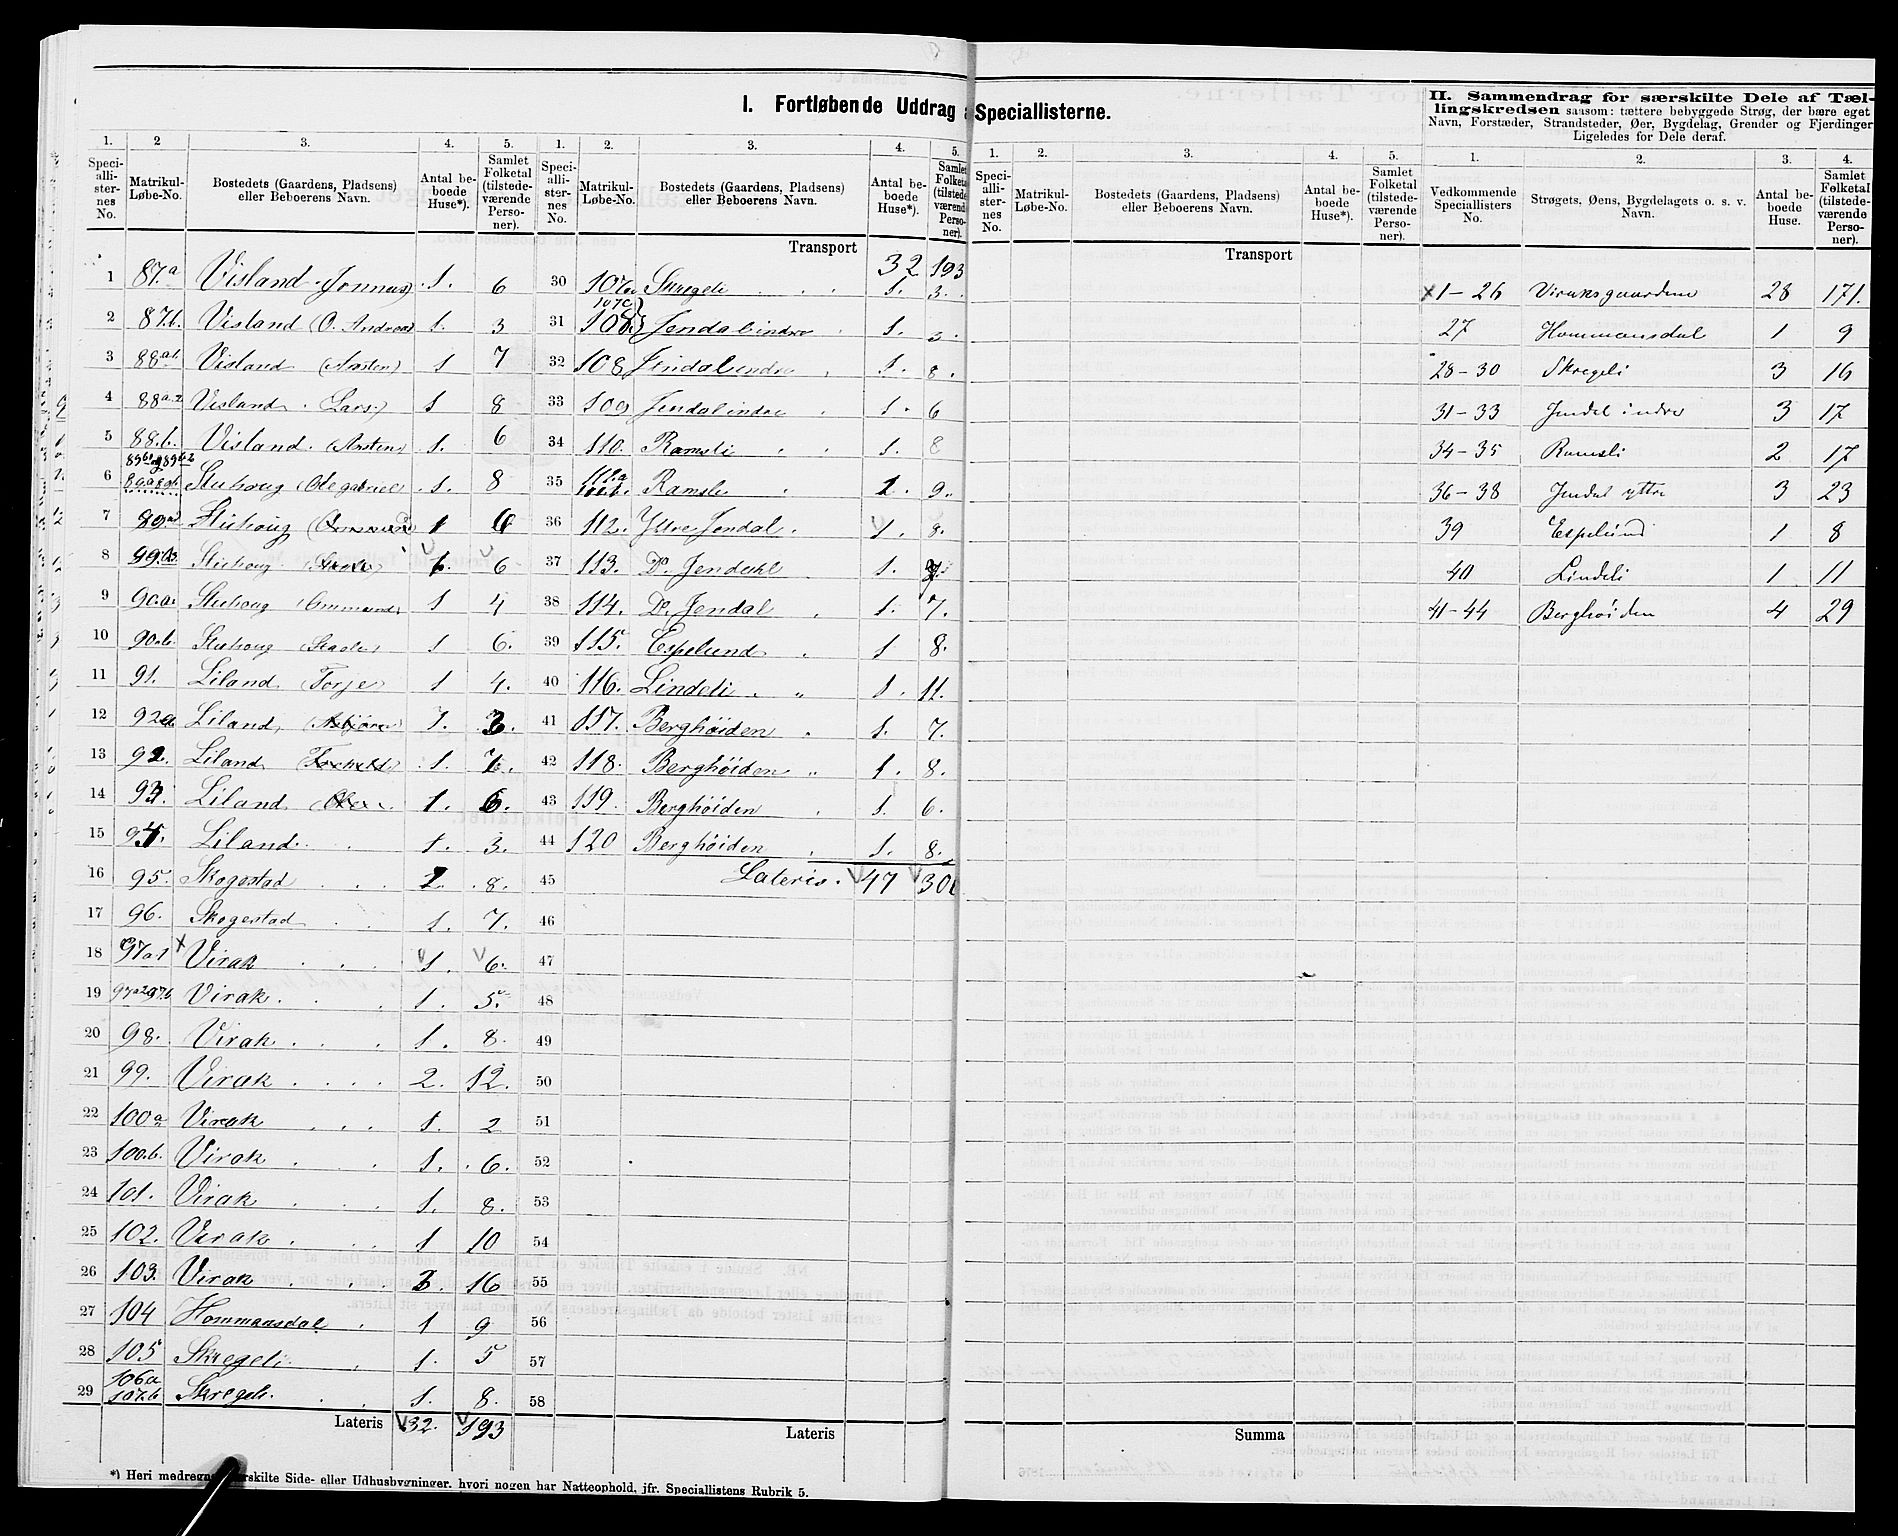 I. Fortløbende Uddrag a Speciallisterne.
II. Sammendrag for særskilte Dele af Tæl-
lingskredsen saasom: tættere bebyggede Strøg, der bære eget
Navn, Forstæder, Strandsteder, Øer, Bygdelag, Grender og Fjerdinger
Ligeledes for Dele deraf.
1. 2 3. 4. 5. 1. 2. 3. 4. 5. 1. 2. 3. 4. 5. 1. 2. 3. 4.
Speci-alli-ster-nes No. Matrikul-Løbe-No. Bostedets (Gaardens, Pladsens) eller Beboerens Navn. Antal be-boede Huse*). Samlet Folketal (tilstede-værende Perso-ner).
Speci-alli-ster-nes No. Matrikul-Løbe-No. Bostedets (Gaardens, Pladsens) eller Beboerens Navn. Antal be-boede Huse*). Samlet Folketal (tilstede-værende Perso-ner).
Speci-alli-ster-nes No. Matrikul-Løbe-No. Bostedets (Gaardens, Pladsens) eller Beboerens Navn. Antal be-boede Huse*). Samlet Folketal (tilstede-værende Perso-ner).
Vedkommende Speciallisters No. Strøgets, Øens, Bygdelagets o. s. v. Navn. Antal be-boede Huse. Samlet Folketal (tilstede-værende Perso-ner).
1 87.a Visland (Jonnas) 1. 6
2 87.b. Visland (O. Andreas) 1. 3
3 88 Visland 1 7
4 88 a.2 Visland. Lars.) 1 8
5 88.b. Visland. 1. 6
6 Stuhoug (Ole gabriel) 1. 8
7 Stuhoug 1 6
8 Stuhoug 1. 6
9 90.a. Stuhoug 1 4
10 90.b. Stuhoug 1 6.
11 91. Liland (Torje) 1 4.
12 92a Liland, 1. 3.
13 92. Liland 1. 7.
14 93. Liland 1. 6.
15 94. Liland. 1. 3.
16 95. Skogestad 2. 8.
17 96. Skogestad 1. 7.
18 97a1 x Virak 1. 6.
19 97a2 97.b Virak. 1. 5.
20 98. Virak 1. 8.
21 99. Virak 2. 12.
22 100a Virak 1. 2
23 100.b. Virak 1. 6.
24 101. Virak 1. 8.
25 102. Virak 1 10
26 103. Virak 3. 16
27 104 Hommansdal 1 9
28 105 Skregeli. 1. 5
29 106a 107.b Skregeli. 1. 8.
Lateris 32. 193
Transport 32 193
30 107a Skregeli 1. 3.
31 107c 108 Jendal indre 1. 3.
32 108 Jendal indre 1. 8.
33 109 Jendal indre 1. 6
34 110. Ramsli 1. 8
35 111.a Ramsli 1. 9.
36 112. Yttre Jendal. 1. 8.
37 113. Do. Jendahl 1.
38 114. Do. Jendal 1. 7.
39 115. Espelund 1 8.
40 116. Lindeli. " 1. 11.
41 117. Berghöiden 1. 7.
42 118. Berghöiden " 1. 8.
43 119. Berghöiden 1. 6.
44 120 Berghöiden 1. 8.
45 Lateris. 47
46
47
48
49
50
51
52
53
54
55
56
57
58
Lateris
Transport
Summa
x1-26 Viraksgaardene 28 171.
27 Hommansdal 1 9
28-30 Skregeli 3 16
31-33 Jendal indre 3 17
34-35 Ramsli 2 17
36-38 Jendal yttre 3 23
39 Espelund 1 8
40 Lindeli 1 11
41-44 Berghöiden 4 29
*) Heri medregnes særskilte Side- eller Udhusbygninger, hvori nogen har Natteophold, jfr. Speciallistens Rubrik 5.